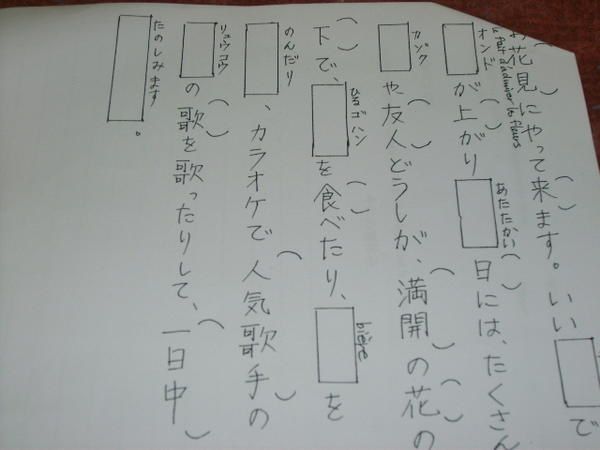 花見にやって来ます。いい で
le fait d'admirer les fleurs
が上がり 日には、たくさん
オンド あたたかい
や友人どうしが、満開の花の
カゾク
下で、 を食べたり、 を
ひるゴハン bière
、カラオケで人気歌手の
のんだり
の歌を歌ったりして、一日中
リュウコウ
。
たのしみます